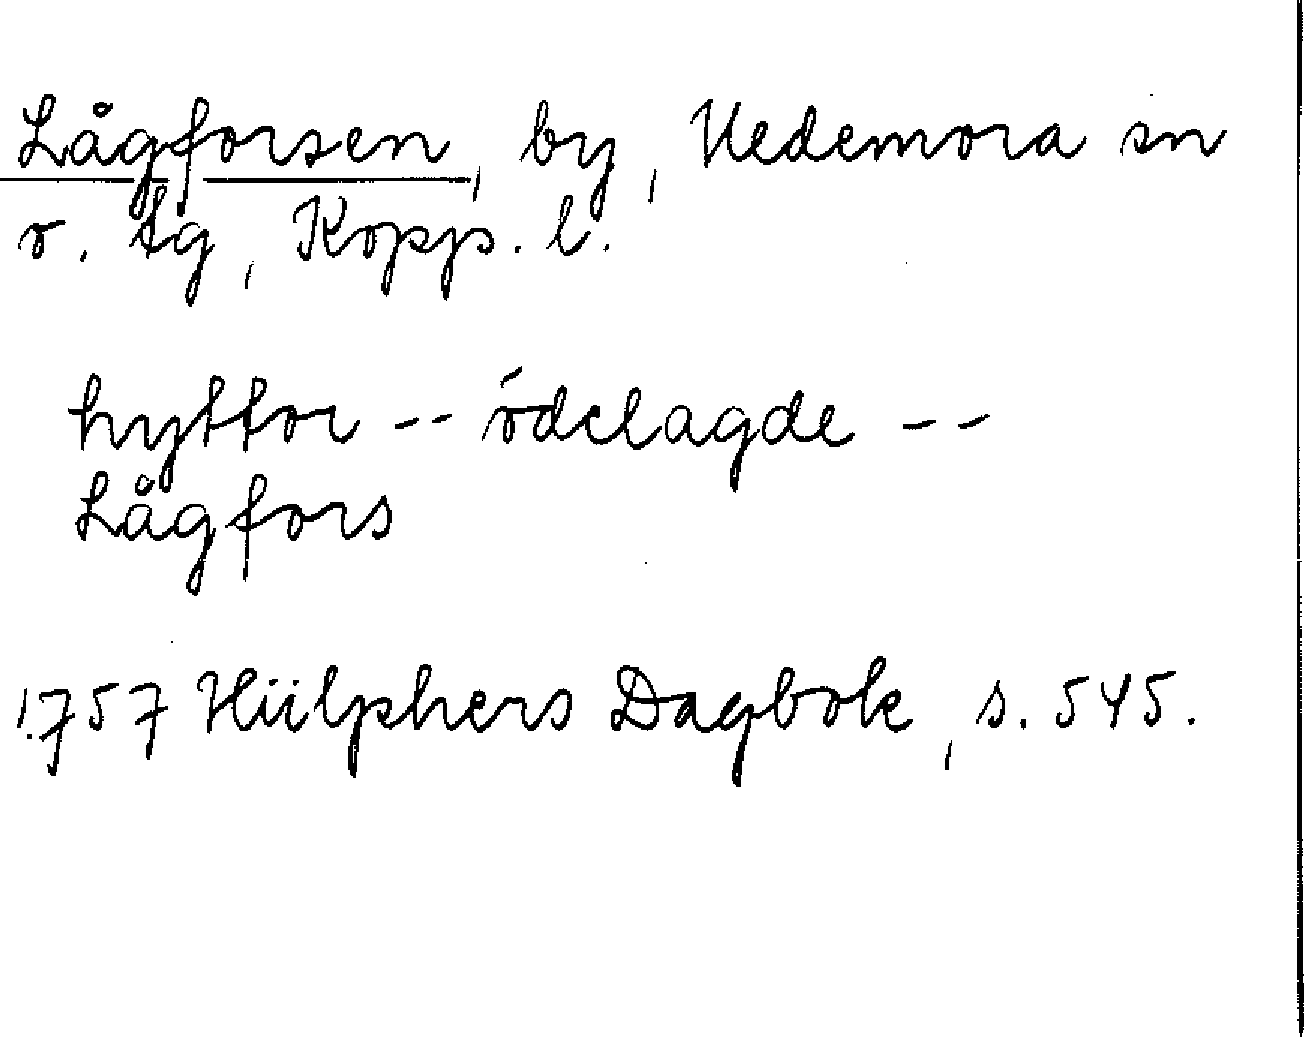 Lågforsen, by, Hedemora sn
o. tg, Kopp. l.
hyttor -- ödelagde --
Lågfors
1757 Hülphers Dagbok, s. 545.